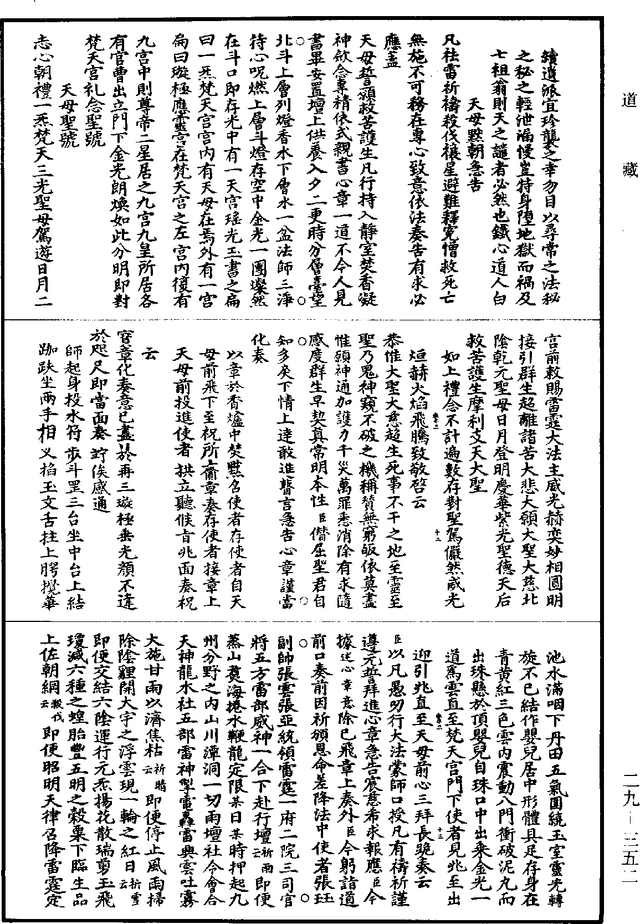 道藏
續遺派宜珍襲之幸勿目以尋常之法秘
之秘之輕泄漏慢豈特身墮地獄而禍及
七祖翁則天之譴者必然也鐵心道人白
天母默朝急告
凡祛雷祈禱殺伐禳星避難釋冤憎救死亡
無施不可務在專心致意依法奏告有求必
應蓋
天母誓願救苦護生凡行持入靜室焚香凝
神歛念專精依式親書心章一道不令人見
書畢安置壇上供養入夕二更時分層臺望
北斗上層列燈香水下層水一盆法師三淨
待心呪燃上層斗燈存空中金光一團燦然
在斗口即存光中有一天宮瑤光玉書之扁
曰一炁梵天宮宮內有天母在焉外有一宮
扁曰璇極應靈宮在梵天宮之左宮內復有
九宮中則尊帝二星居之九宮九皇所居各
有官曹出立門下金光朗煥如此分明即對
梵天宮礼念聖號
天母聖號
志心朝禮一炁梵天三光聖母駕遊日月二
宮前敕賜雷霆大法主威光赫奕妙相圓明
接引群生超離諸苦大悲大願大聖大慈北
陰乾元聖母日月登明慶華紫光聖德天后
救苦護生摩利支天大聖
如上禮念不計遍數存對聖駕儼然威光
烜赫火焰飛騰致敬啓云
恭惟大聖大意超生死事不干之地至靈至
聖乃鬼神窺不破之機稱贊無窮皈依莫盡
惟願神通加護力千災萬罪悉消除有求隨
感度群生早契真常明本性臣僭屈聖君自
知多矣下情上達敢進誓言急告心章謹當
化奏
以章於香爐中焚默召使者存使者自天
母前飛下至祝所齎章奏存使者接章上
天母前投進使者拱立聽候旨兆面奏祝
云
寶章化奏意已盡於再三璇極垂光顏不違
於咫尺即當面奏竚俟感通
師起身投水符步斗罡三台坐中台上結
跏趺坐兩手相叉掐玉文舌拄上腭攪華
池水滿咽下丹田五氣圍繞玉室靈光轉
旋不已結作嬰兒居中形體具足存身在
青黃紅三色雲內震動八門衝破泥丸而
出珠懸於頂嬰兒自珠口中出乘金光一
道駕雲直至梵天宮門下使者見兆至出
迎引兆直至天母前心三拜長跪奏云
臣以凡愚叨行大法蒙師口授凡有禱祈謹
遵元誓拜進心章急告扆意希求報應臣今
據述心章意除已飛章上奏外臣今躬詣道
前口奏前因祈頒恩命差降法中使者張珏
副帥張雲張亚統領雷霆一府二院三司官
將五方雷部威神一合下赴行壇云祈雨即便
蒸山糞海捲水鞭龍定限某日某時押起九
州分野之內山川潭洞一切雨壇社令會合
天神龍水社五部雷神掣電轟雷興雲吐霧
大施甘雨以濟焦枯云祈晴即便停止風雨掃
除陰霾開大宇之浮雲現一輪之紅日云祈雪
即便交結六陰運行元炁揚花散瑞剪玉飛
瓊滅六種之蝗胎豐五明之穀粟下臨生品
上佐朝綱云殺伐即便昭明天律召降雷霆定
二九-三五二